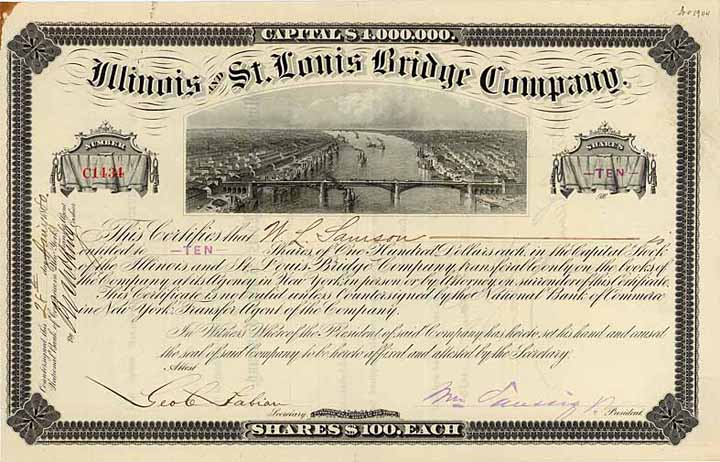 CAPITAL $4.000.000.
Illinois AND St. Louis Bridge Company.
NUMBER
C1434
SHARES
—TEN—
This Certifies that W L Samson is
entitled to —TEN— Shares of One Hundred Dollars each, in the Capital Stock
of the Illinois and St. Louis Bridge Company, transferable only on the books of
the Company at its Agency in New York, in person or by Attorney on surrender of this Certificate.
This Certificate is not valid unless Countersigned by the National Bank of Commerce
in New York, Transfer Agent of the Company.
In Witness Whereof the President of said Company has hereto set his hand and caused
the seal of said Company to be hereto affixed and attested by the Secretary.
Attest
Geo C Fabian
Secretary.
Wm Taussig
President.
SHARES $100. EACH
Countersigned this
National Bank of Commerce, New York
Transfer Agent
Cashier